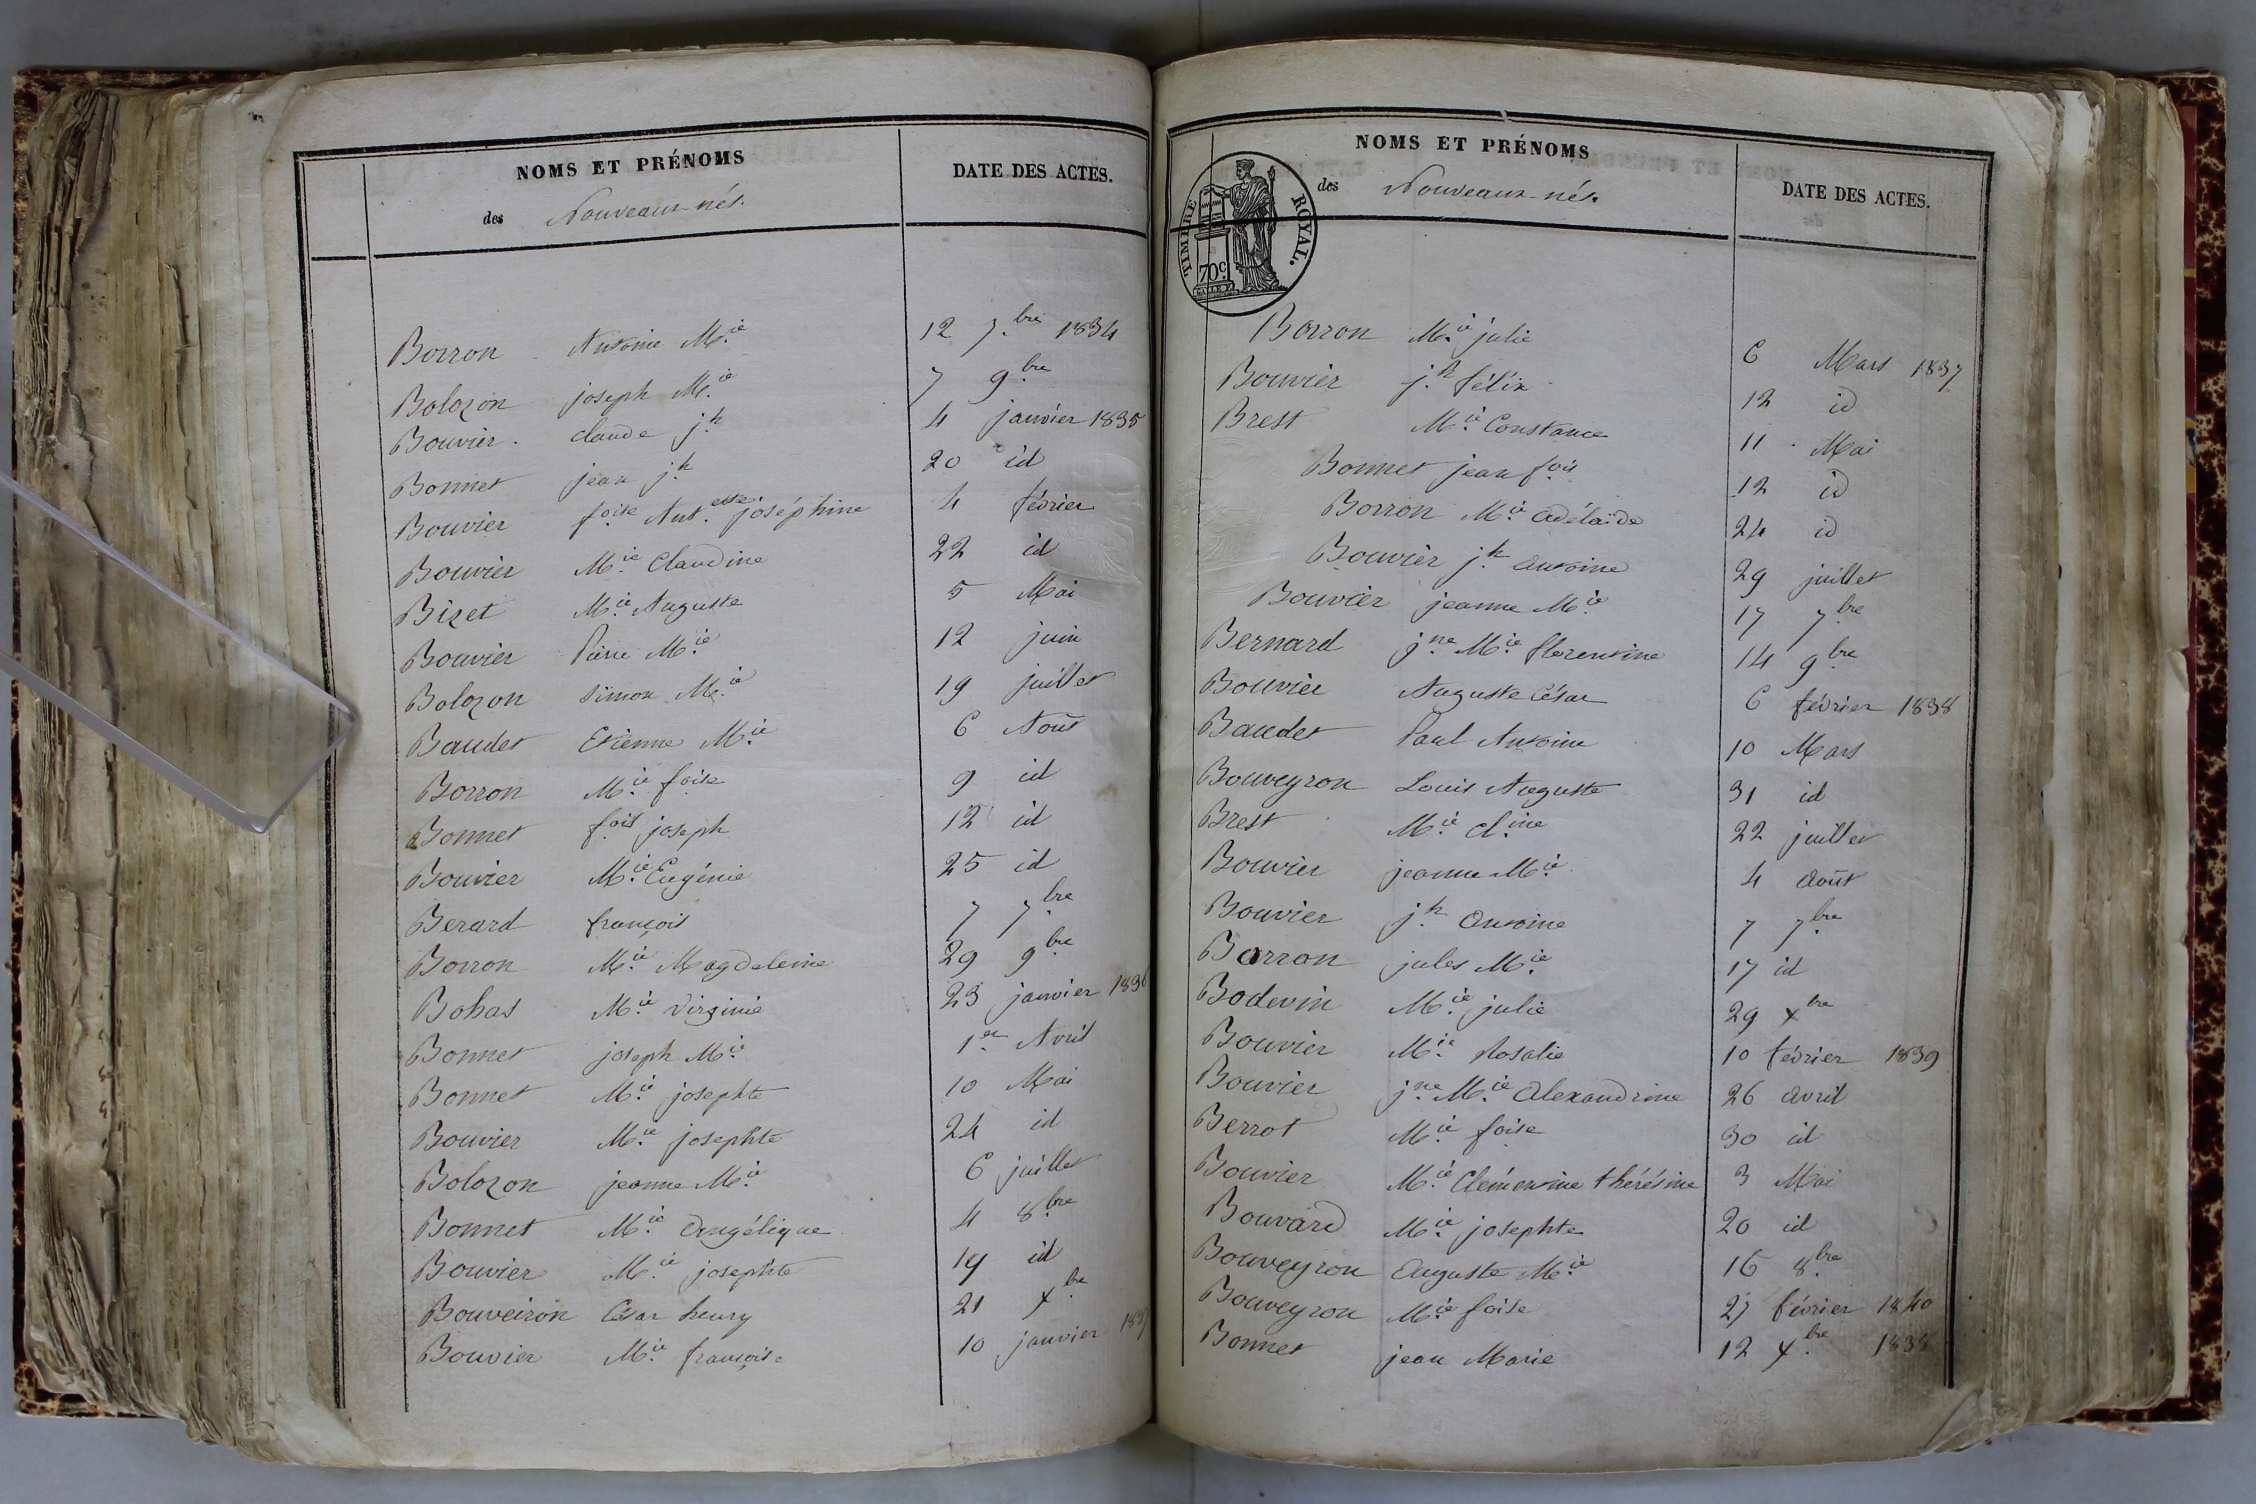 NOMS ET PRÉNOMS DATE DES ACTES.
des Nouveaux-nés.
Borron Antoine M.ie 12 7.bre 1834
Bolozon joseph M.ie 7 9.bre
Bouvier. claude j.h 4 janvier 1835
Bonnet jean j.h 20 id
Bouvier f.oise Ant.ette joséphine 4 février
Bouvier M.ie Claudine 22 id
Bizet M.ie Auguste 5 Mai
Bouvier Pierre M.ie 12 juin
Bolozon simon M.ie 19 juillet
Baudet Etienne M.ie 6 Août
Borron M.ie foise 9 id
Bonnet f.ois joseph 12 id
Bouvier M.ie Eugénie 25 id
Berard françois 7 7.bre
Borron M.ie Magdeleine 29 9.bre
Bohas M.ie Virginie 23 janvier 1836
Bonnet joseph M.ie 1.er Avril
Bonnet M.ie josephte 10 Mai
Bouvier M.ie josephte 24 id
Bolozon jeanne M.ie 6 juillet
Bonnet M.ie Angélique 4 8.bre
Bouvier M.ie josephte 19 id
Bouveiron César henry 21 x.bre
Bouvier M.ie françoise 10 janvier 1837
NOMS ET PRÉNOMS DATE DES ACTES.
des Nouveaux-nés.
TIMBRE ROYAL.
70c.
Borron M.ie julie 6 Mars 1837
Bouvier j.h félix 12 id
Brest M.ie Constance 11 Mai
Bonnet jean f.ois 12 id
Borron M.ie adélaïde 24 id
Bouvier j.h antoine 29 juillet
Bouvier jeanne M.ie 17 7.bre
Bernard j.ne M.ie florentine 14 9.bre
Bouvier Auguste César 6 février 1838
Baudet Paul Antoine 10 Mars
Bouveyron Louis Auguste 31 id
Brest M.ie cl.ine 22 juillet
Bouvier jeanne M.ie 4 août
Bouvier j.h antoine 7 7.bre
Borron jules M.ie 17 id
Bodevin M.ie julie 29 x.bre
Bouvier M.ie Rosalie 10 février 1839
Bouvier j.ne M.ie Alexandrine 26 avril
Berrot M.ie foise 30 id
Bouvier M.ie Clémentine thérésine 3 Mai
Bouvard M.ie josephte 20 id
Bouveyron Auguste M.ie 16 8.bre
Bouveyron M.ie foise 27 février 1840
Bonnet jean Marie 12 x.bre 1838